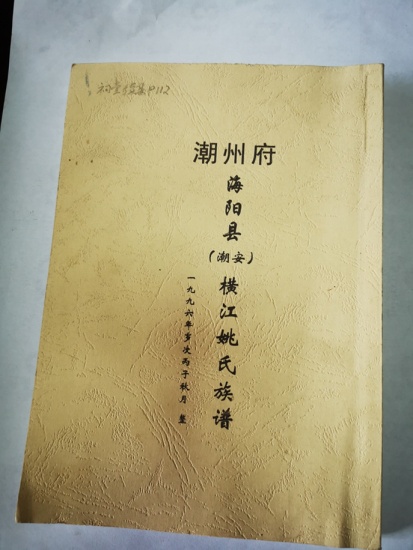 潮州府
海阳县
（潮安）
横江姚氏族谱
一九九六年岁次丙子秋月